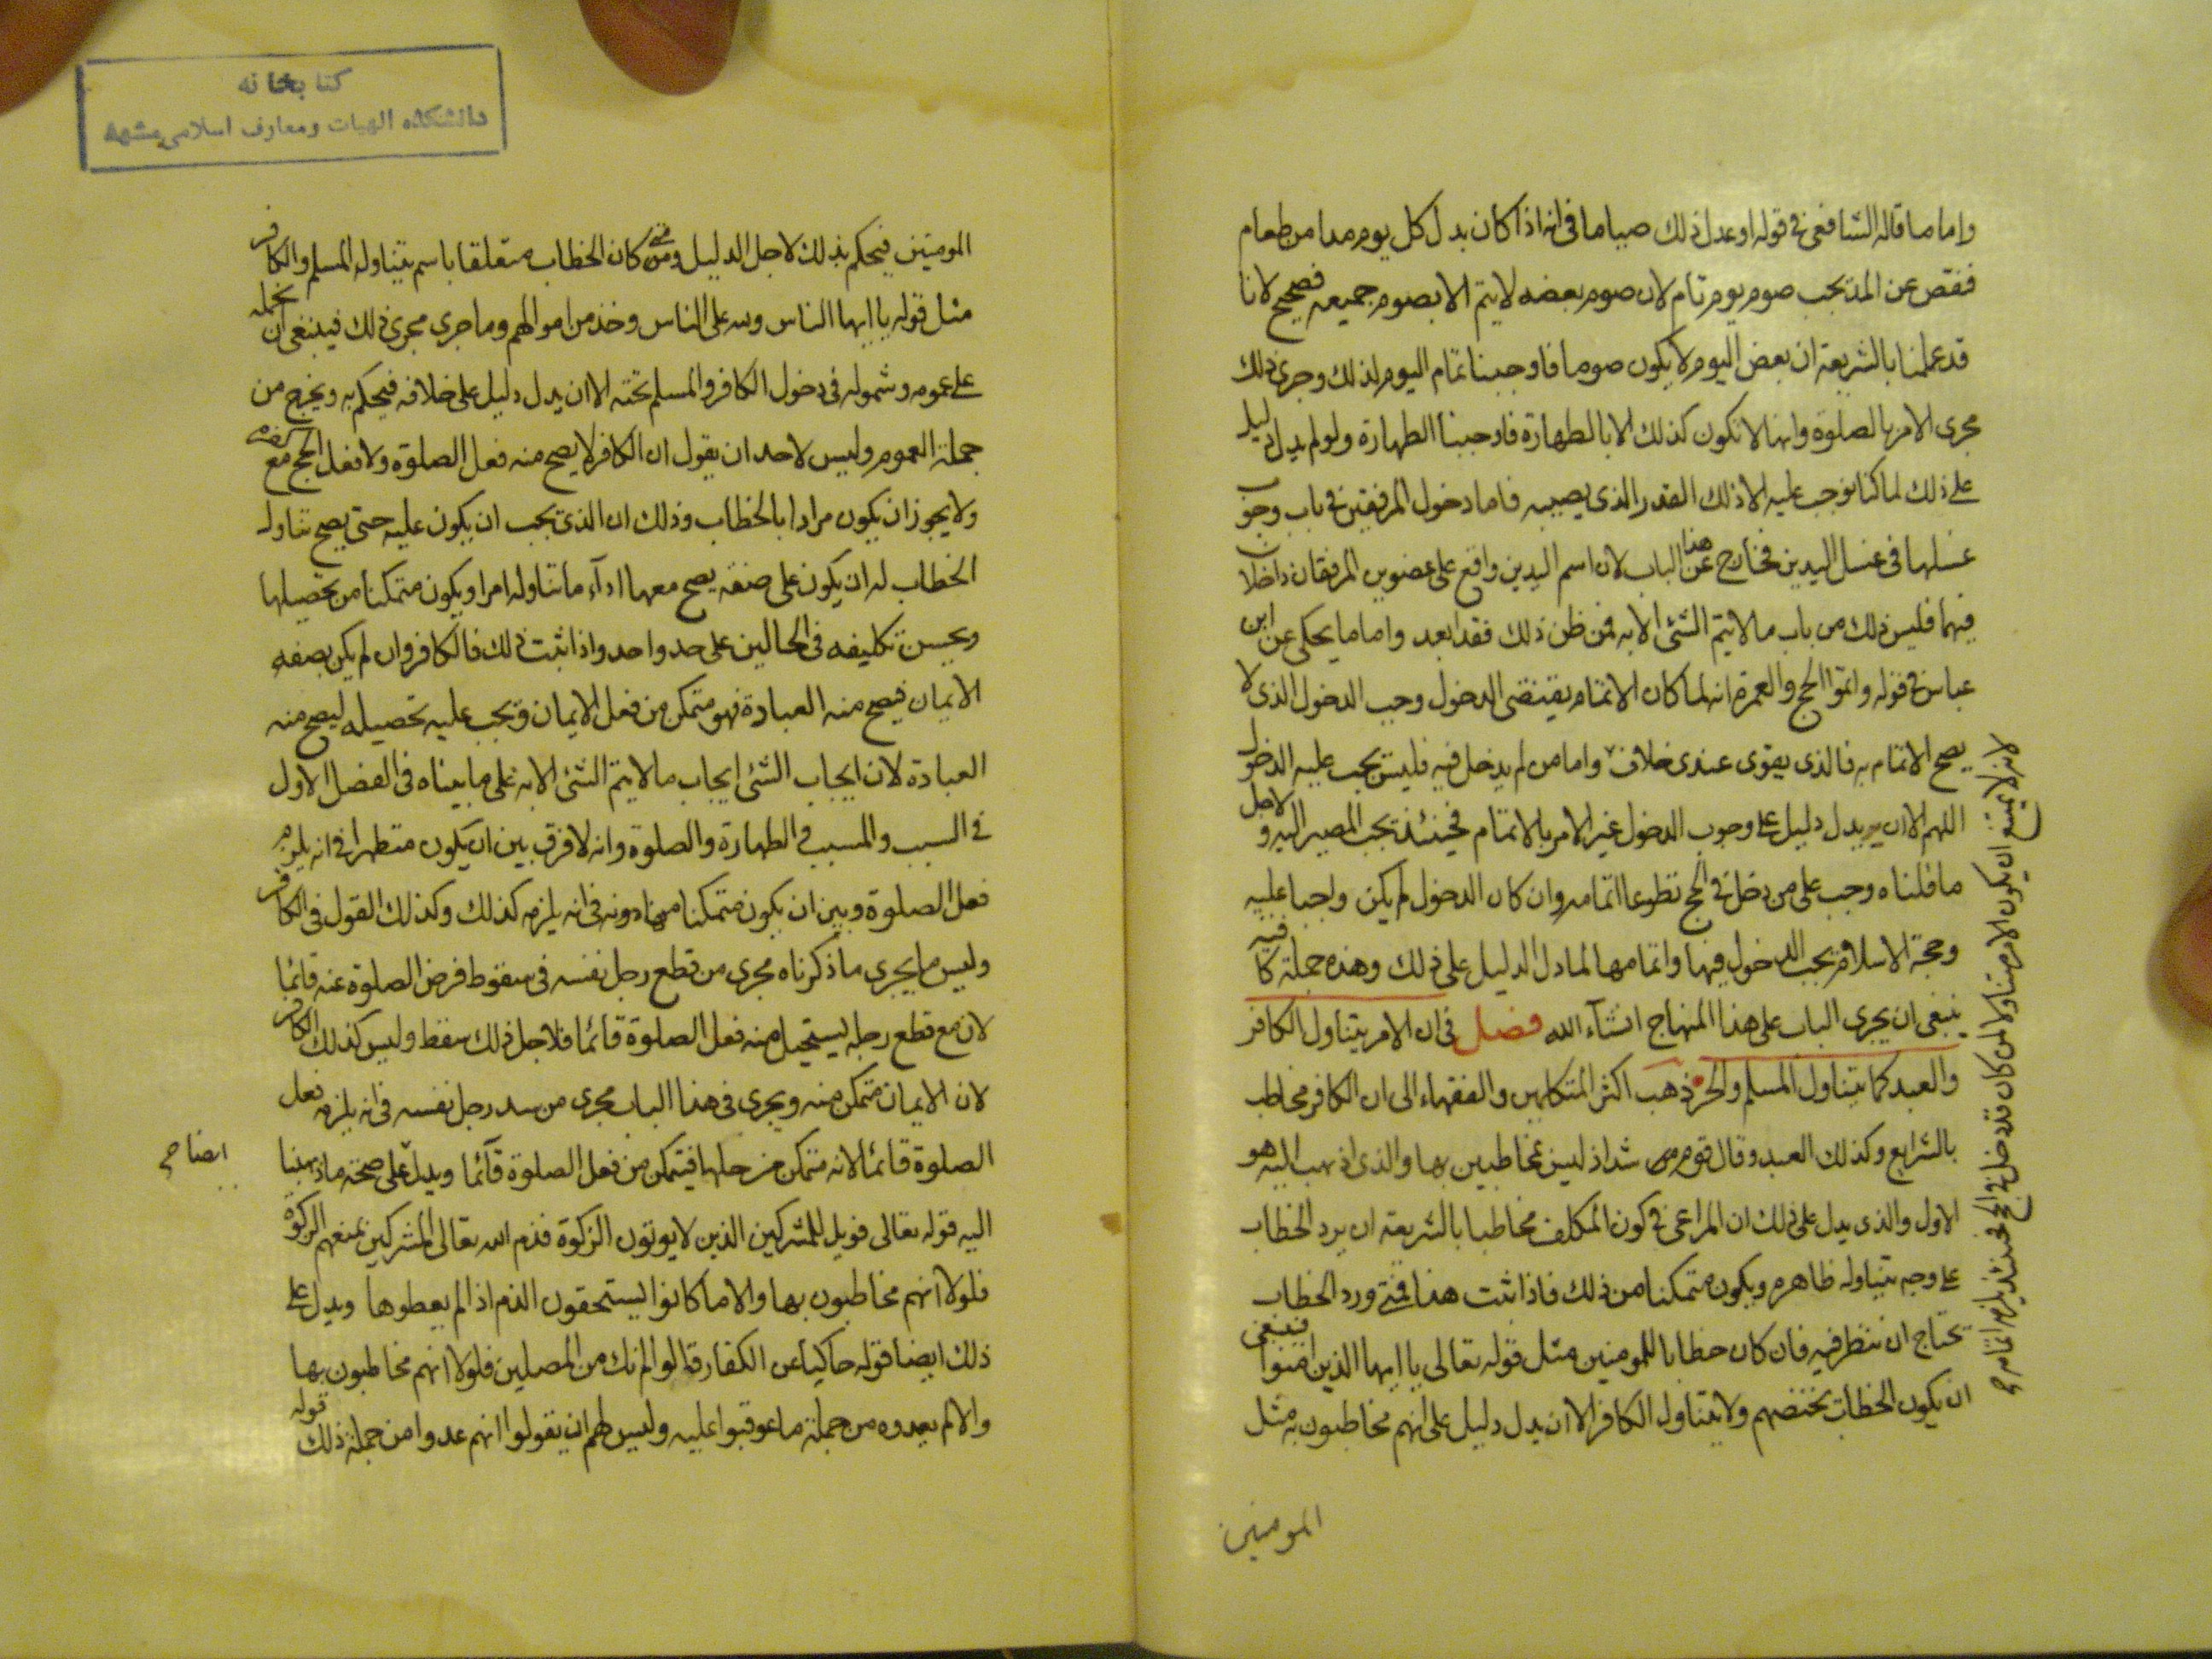 واما ما قاله الشافعى فى قوله او عدل ذلك صياما فى انه اذا كان بدل كل يوم مدا من طعام
فنقص عن المد يجب صوم يوم تام لان صوم بعضه لا يتم الا بصوم جميعه فصحيح لانا
قد علمنا بالشريعة ان بعض اليوم لا يكون صوما فاوجبنا تمام اليوم لذلك وجرى ذلك
مجرى الامر بالصلوة وانها لا تكون كذلك الا بالطهارة فاوجبنا الطهارة ولو لم يدل دليل
على ذلك لما كنا نوجب عليه الا ذلك القدر الذى يصيبه فاما دخول المرفقين فى باب وجوب
غسلها فى غسل اليدين فخارج عن هذا الباب لان اسم اليدين واقع على عضوين المرفقان داخلان
فيهما فليس ذلك من باب ما لا يتم الشئ الا به فمن ظن ذلك فقد ابعد واما ما يحكى عن ابن
عباس فى قوله واتموا الحج والعمرة انه لما كان الاتمام يقتضى الدخول وجب الدخول الذى لا
يصح الاتمام به فالذى يقوى عندى خلافه واما من لم يدخل فيه فليس يجب عليه الدخول
اللهم الا ان يدل دليل على وجوب الدخول غير الامر بالاتمام فحينئذ يجب المصير اليه ولاجل
ما قلناه وجب على من دخل فى الحج تطوعا اتمامه وان كان الدخول لم يكن واجبا عليه
وحجة الاسلام يجب الدخول فيها واتمامها لما دل الدليل على ذلك وهذه جملة كافية
ينبغى ان يجرى الباب على هذا المنهاج انشآء الله فصل فى ان الامر يتناول الكافر
والعبد كما يتناول المسلم والحر ذهب اكثر المتكلمين والفقهاء الى ان الكافر مخاطب
بالشرايع وكذلك العبد وقال قوم من شذاذ ليس مخاطبين بها والذى اذهب اليه هو
الاول والذى يدل على ذلك ان المراعى فى كون المكلف مخاطبا بالشريعة ان يرد الخطاب
على وجه يتناوله ظاهره ويكون متمكنا من ذلك فاذا ثبت هذا فمتى ورد الخطاب
تحتاج ان ننظر فيه فان كان خطابا للمومنين مثل قوله تعالى يا ايها الذين امنوا فينبغى
ان يكون الخطاب يختصهم ولا يتناول الكافر الا ان يدل دليل على انهم مخاطبون به مثل
المومنين
لانه لا يمتنع ان يكون الامر متناولا لمن كان قد دخل فى الحج فحينئذ يلزمه اتمامه
كتابخانه
دانشكده الهيات ومعارف اسلامى مشهد
المومنين فيحكم بذلك لاجل الدليل ومتى كان الخطاب متعلقا باسم يتناوله المسلم والكافر
مثل قوله يا ايها الناس ولله على الناس وخذ من اموالهم وما جرى مجرى ذلك فينبغى ان نحمله
على عمومه وشموله فى دخول الكافر والمسلم تحته الا ان يدل دليل على خلافه فيحكم به ويخرج من
جملة العموم وليس لاحد ان يقول ان الكافر لا يصح منه فعل الصلوة ولا فعل الحج مع كفره
ولا يجوز ان يكون مرادا بالخطاب وذلك ان الذى يجب ان يكون عليه حتى يصح تناول
الخطاب له ان يكون على صفة يصح معها ادآء ما تناوله امرا ويكون متمكنا من تحصيلها
ويحسن تكليفه فى الحالين على حد واحد واذا ثبت ذلك فالكافر وان لم يكن بصفه
الايمان فيصح منه العبادة فهو متمكن من فعل الايمان فيجب عليه تحصيله ليصح منه
العبادة لان ايجاب الشئ ايجاب ما لا يتم الشئ الا به على ما بيناه فى الفصل الاول
فى السبب والمسبب فى الطهارة والصلوة وانه لا فرق بين ان يكون متطهرا فى انه يلزمه
فعل الصلوة وبين ان يكون متمكنا منها دونه فى انه يلزمه كذلك وكذلك القول فى الكافر
وليس ما يجرى ما ذكرناه مجرى من قطع رجل نفسه فى سقوط فرض الصلوة عنه قائما
لان مع قطع رجله يستحيل منه فعل الصلوة قائما فلاجل ذلك سقط وليس كذلك الكافر
لان الايمان متمكن منه ويجرى فى هذا الباب مجرى من شد رجل نفسه فى انه يلزمه فعل
الصلوة قائما لانه متمكن من حلها فيتمكن من فعل الصلوة قآئما ويدل على صحة ما ذهبنا
ايضا
اليه قوله تعالى فويل للمشركين الذين لا يوتون الزكوة فذم الله تعالى المشركين بمنعهم الزكوة
فلولا انهم مخاطبون بها والا ما كانوا يستحقون الذم اذا لم يعطوها ويدل على
ذلك ايضا قوله حاكيا عن الكفار قالوا لم نك من المصلين فلولا انهم مخاطبون بها
والا لم يعدوه من جملة ما عوقبوا عليه وليس لهم ان يقولوا انهم عدوا من جملة ذلك قوله